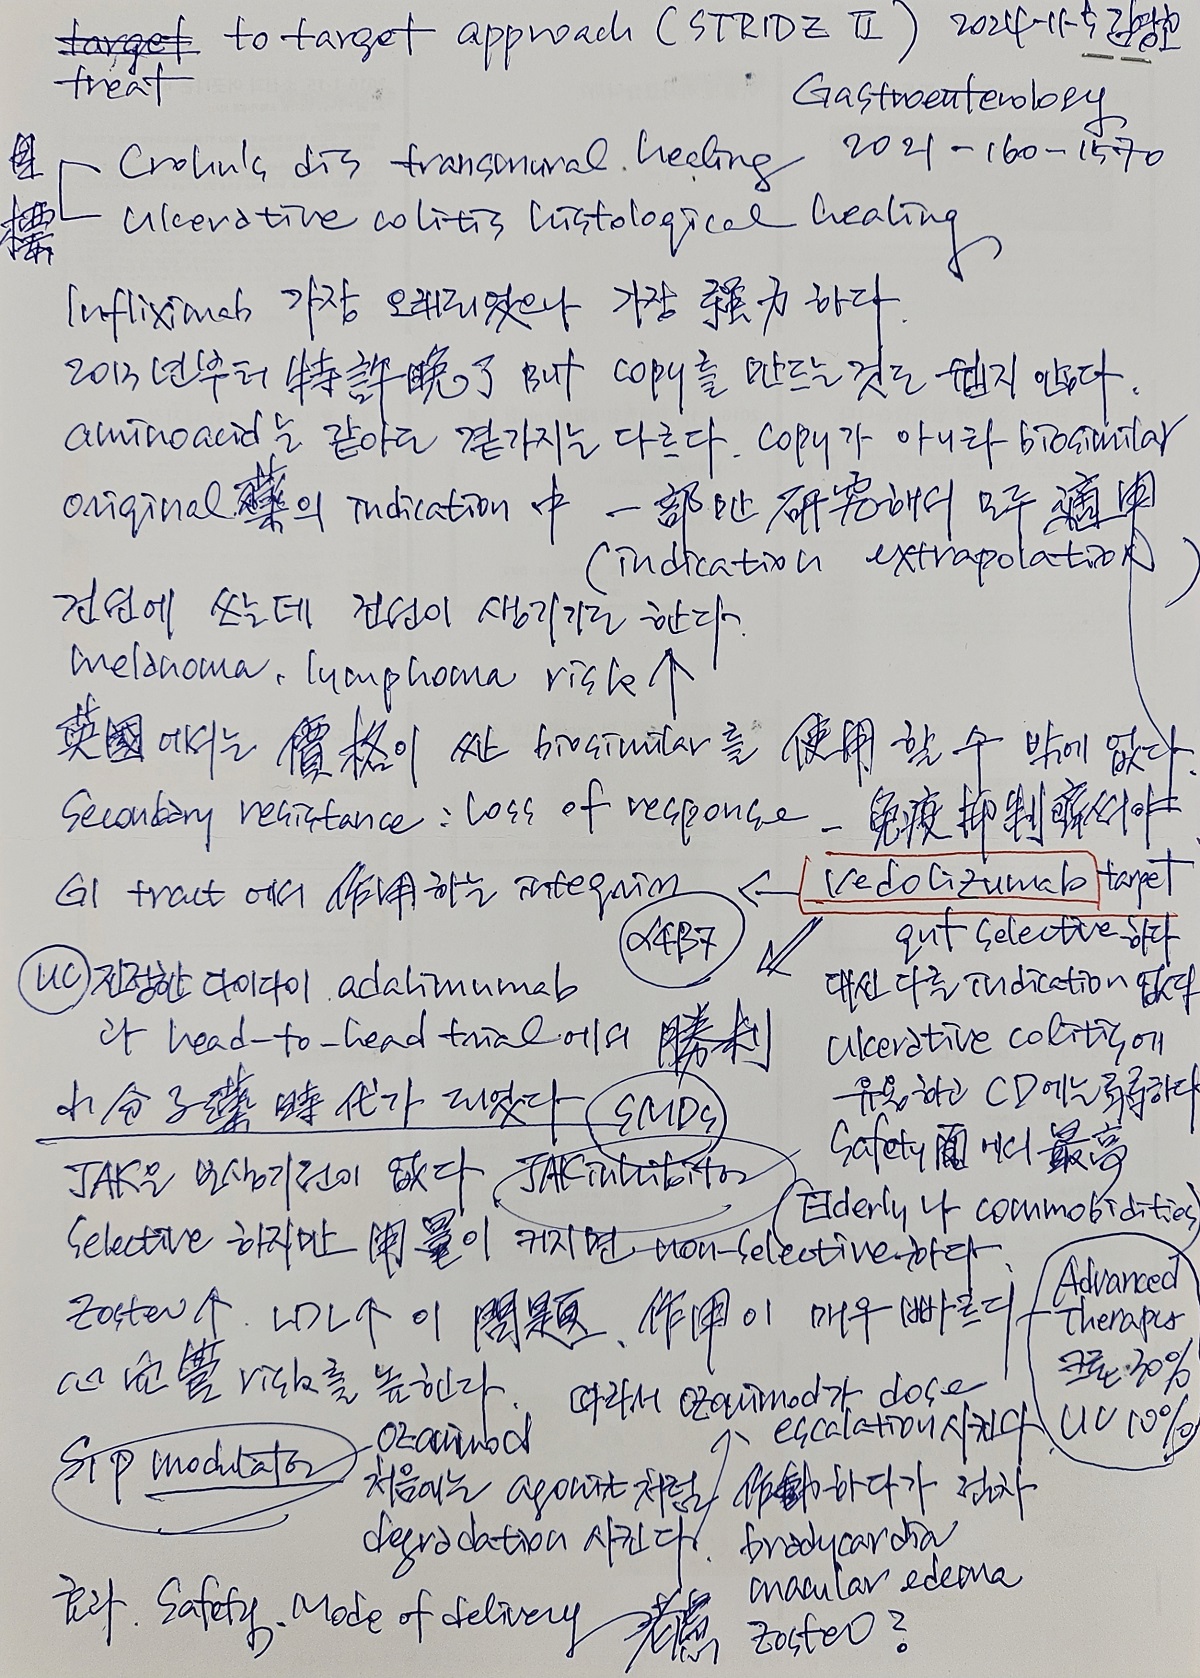 target to target approach (STRIDE II) 2024-11-5 김영호
treat
Gastroenterology
2021-160-1570
目標
Crohn's dis transmural healing
ulcerative colitis histological healing
Infliximab 가장 오래되었으나 가장 强力하다.
2013년부터 特許晩了 But copy를 만드는 것도 쉽지 않다.
aminoacid는 같아도 곁가지는 다르다. copy가 아니라 biosimilar
original 藥의 indication 中 一部만 研究해서 모두 適用
(indication extrapolation)
건선에 쓰는데 건선이 생기기도 한다.
melanoma, lymphoma risk ↑
英國에서는 價格이 싸 biosimilar를 使用할 수 밖에 없다.
Secondary resistance : loss of response - 免疫抑制劑 써야
GI tract에서 作用하는 integrin ← Vedolizumab target
α4β7
gut selective 하다
대신 다른 indication 없다
ulcerative colitis에
유용하고 CD에는 弱하다
Safety面에서 最高
(Elderly나 commobidities)
UC 진정한 다이다이 adalimumab
과 head-to-head trial에서 勝利
小分子藥 時代가 되었다 SMDs
JAK은 보상기전이 없다 JAK inhibitor
selective 하지만 用量이 커지면 non-selective 하다.
Zoster ↑ LDL ↑ 이 問題. 作用이 매우 빠르다
心血管 risk를 높인다.
Advanced
Therapy
크론 30%
UC 10%
따라서 ozanimod가 dose
escalation 시킨다
S1P modulator
ozanimod
처음에는 agonist처럼 作動하다가 점차
degradation 시킨다.
bradycardia
macular edema
zoster?
효과. Safety. Mode of delivery 考慮